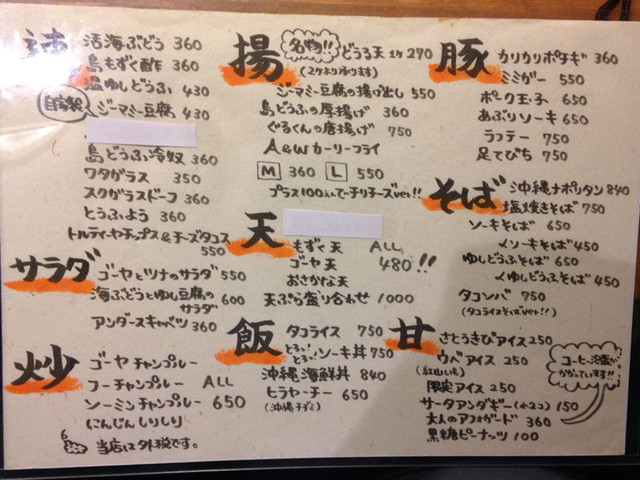 速
活海ぶどう 360
島もずく酢 360
温ゆしどうふ 430
自家製 ジーマミー豆腐 430
島どうふ冷奴 360
ワタガラス 350
スクガラスドーフ 360
とうふよう 360
トルティーヤチップス&チーズタコス 550
サラダ
ゴーヤとツナのサラダ 550
海ぶどうとゆし豆腐の
サラダ 600
アンダースキャベツ 360
炒
ゴーヤチャンプルー
フーチャンプルー ALL
ソーミンチャンプルー 650
にんじんしりしり
当店は外税です。
揚
名物!! どぅる天 1ケ 270
(2ケより承ります)
ジーマミー豆腐の揚げ出し 550
島どうふの厚揚げ 360
ぐるくんの唐揚げ 750
A&Wカーリーフライ
M 360 L 550
プラス100えんでチリチーズver!!
天
もずく天 ALL
ゴーヤ天 480!!
おさかな天
天ぷら盛り合わせ 1000
飯
タコライス 750
とろっ!とろ! ソーキ丼 750
沖縄海鮮丼 840
ヒラヤーチー 650
(沖縄チヂミ)
豚
カリカリポテギ 360
ミミガー 550
ポーク玉子 650
あぶりソーキ 650
ラフテー 750
足てびち 750
そば
沖縄ナポリタン 840
塩焼きそば 750
ソーキそば 650
〃ソーキそば 450
ゆしどうふそば 650
〃ゆしどうふそば 450
タコンバ 750
(タコライスそばver!!)
甘
さとうきびアイス 250
ウベアイス 250
(紅山いも)
限定アイス 250
サータアンダギー(小2コ) 150
大人のアフォガード 360
黒糖ピーナッツ 100
コーヒー泡盛が
かかっています!!